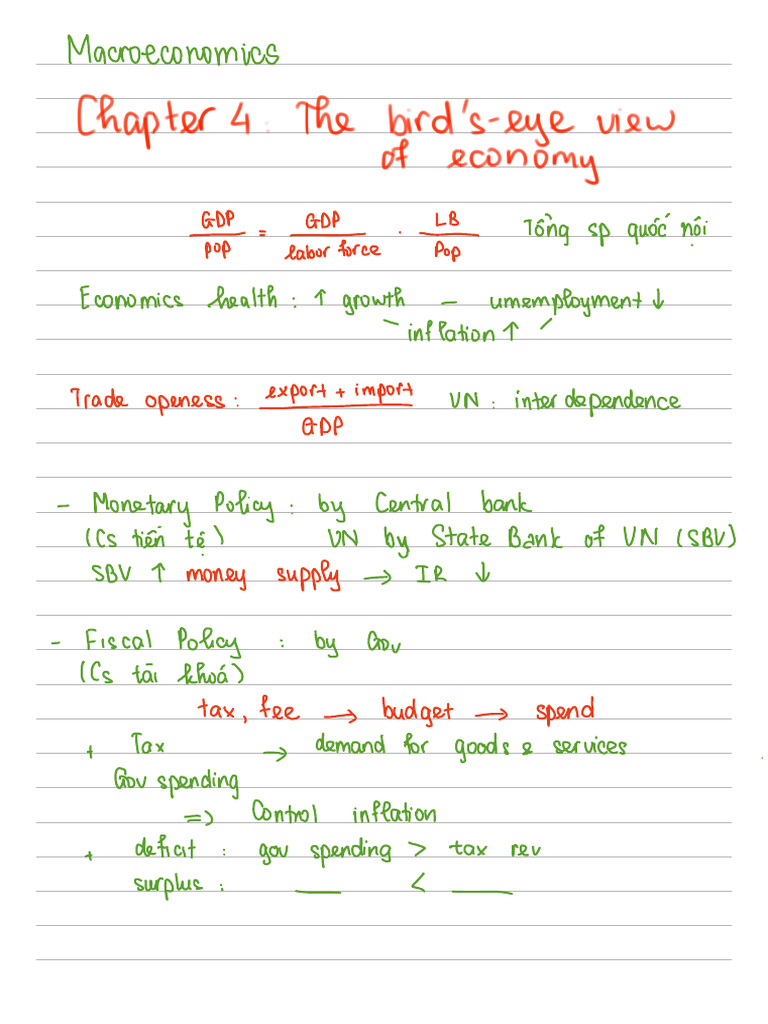 Macroeconomics
Chapter 4: The bird's-eye view
of economy
GDP/pop = GDP/labor force . LB/Pop Tổng sp quốc nội
Economics health: ↑ growth – umemployment ↓
inflation ↑
Trade openess: export + import/GDP VN: interdependence
- Monetary Policy: by Central bank
(Cs tiền tệ) VN by State Bank of VN (SBV)
SBV ↑ money supply → IR ↓
- Fiscal Policy: by Gov
(Cs tài khoá)
tax, fee → budget → spend
+ Tax → demand for goods & services
Gov spending
=> Control inflation
+ deficit: gov spending > tax rev
surplus: ___ < ___